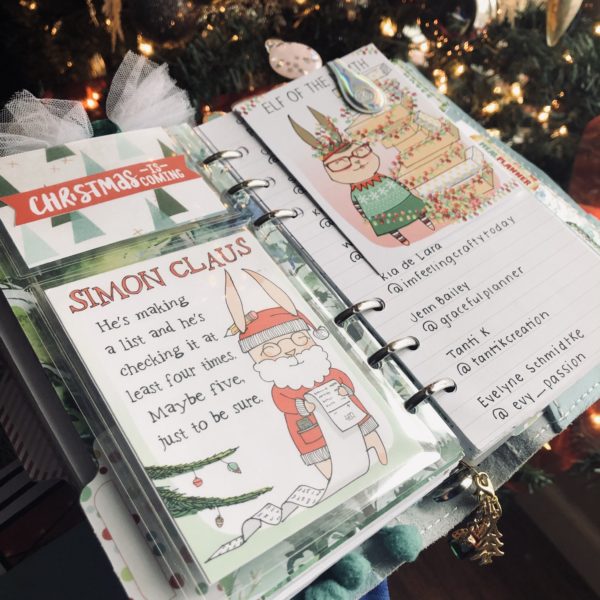 CHRISTMAS IS COMING
SIMON CLAUS
He's making
a list and he's
checking it at
least four times.
Maybe five,
just to be sure.
ELF OF THE
PLANNER
Kia de Lara
@imfeelingcraftytoday
Jenn Bailey
@gracefulplanner
Tanti K
@tantikcreation
Evelyne Schmidtke
@evy_passion